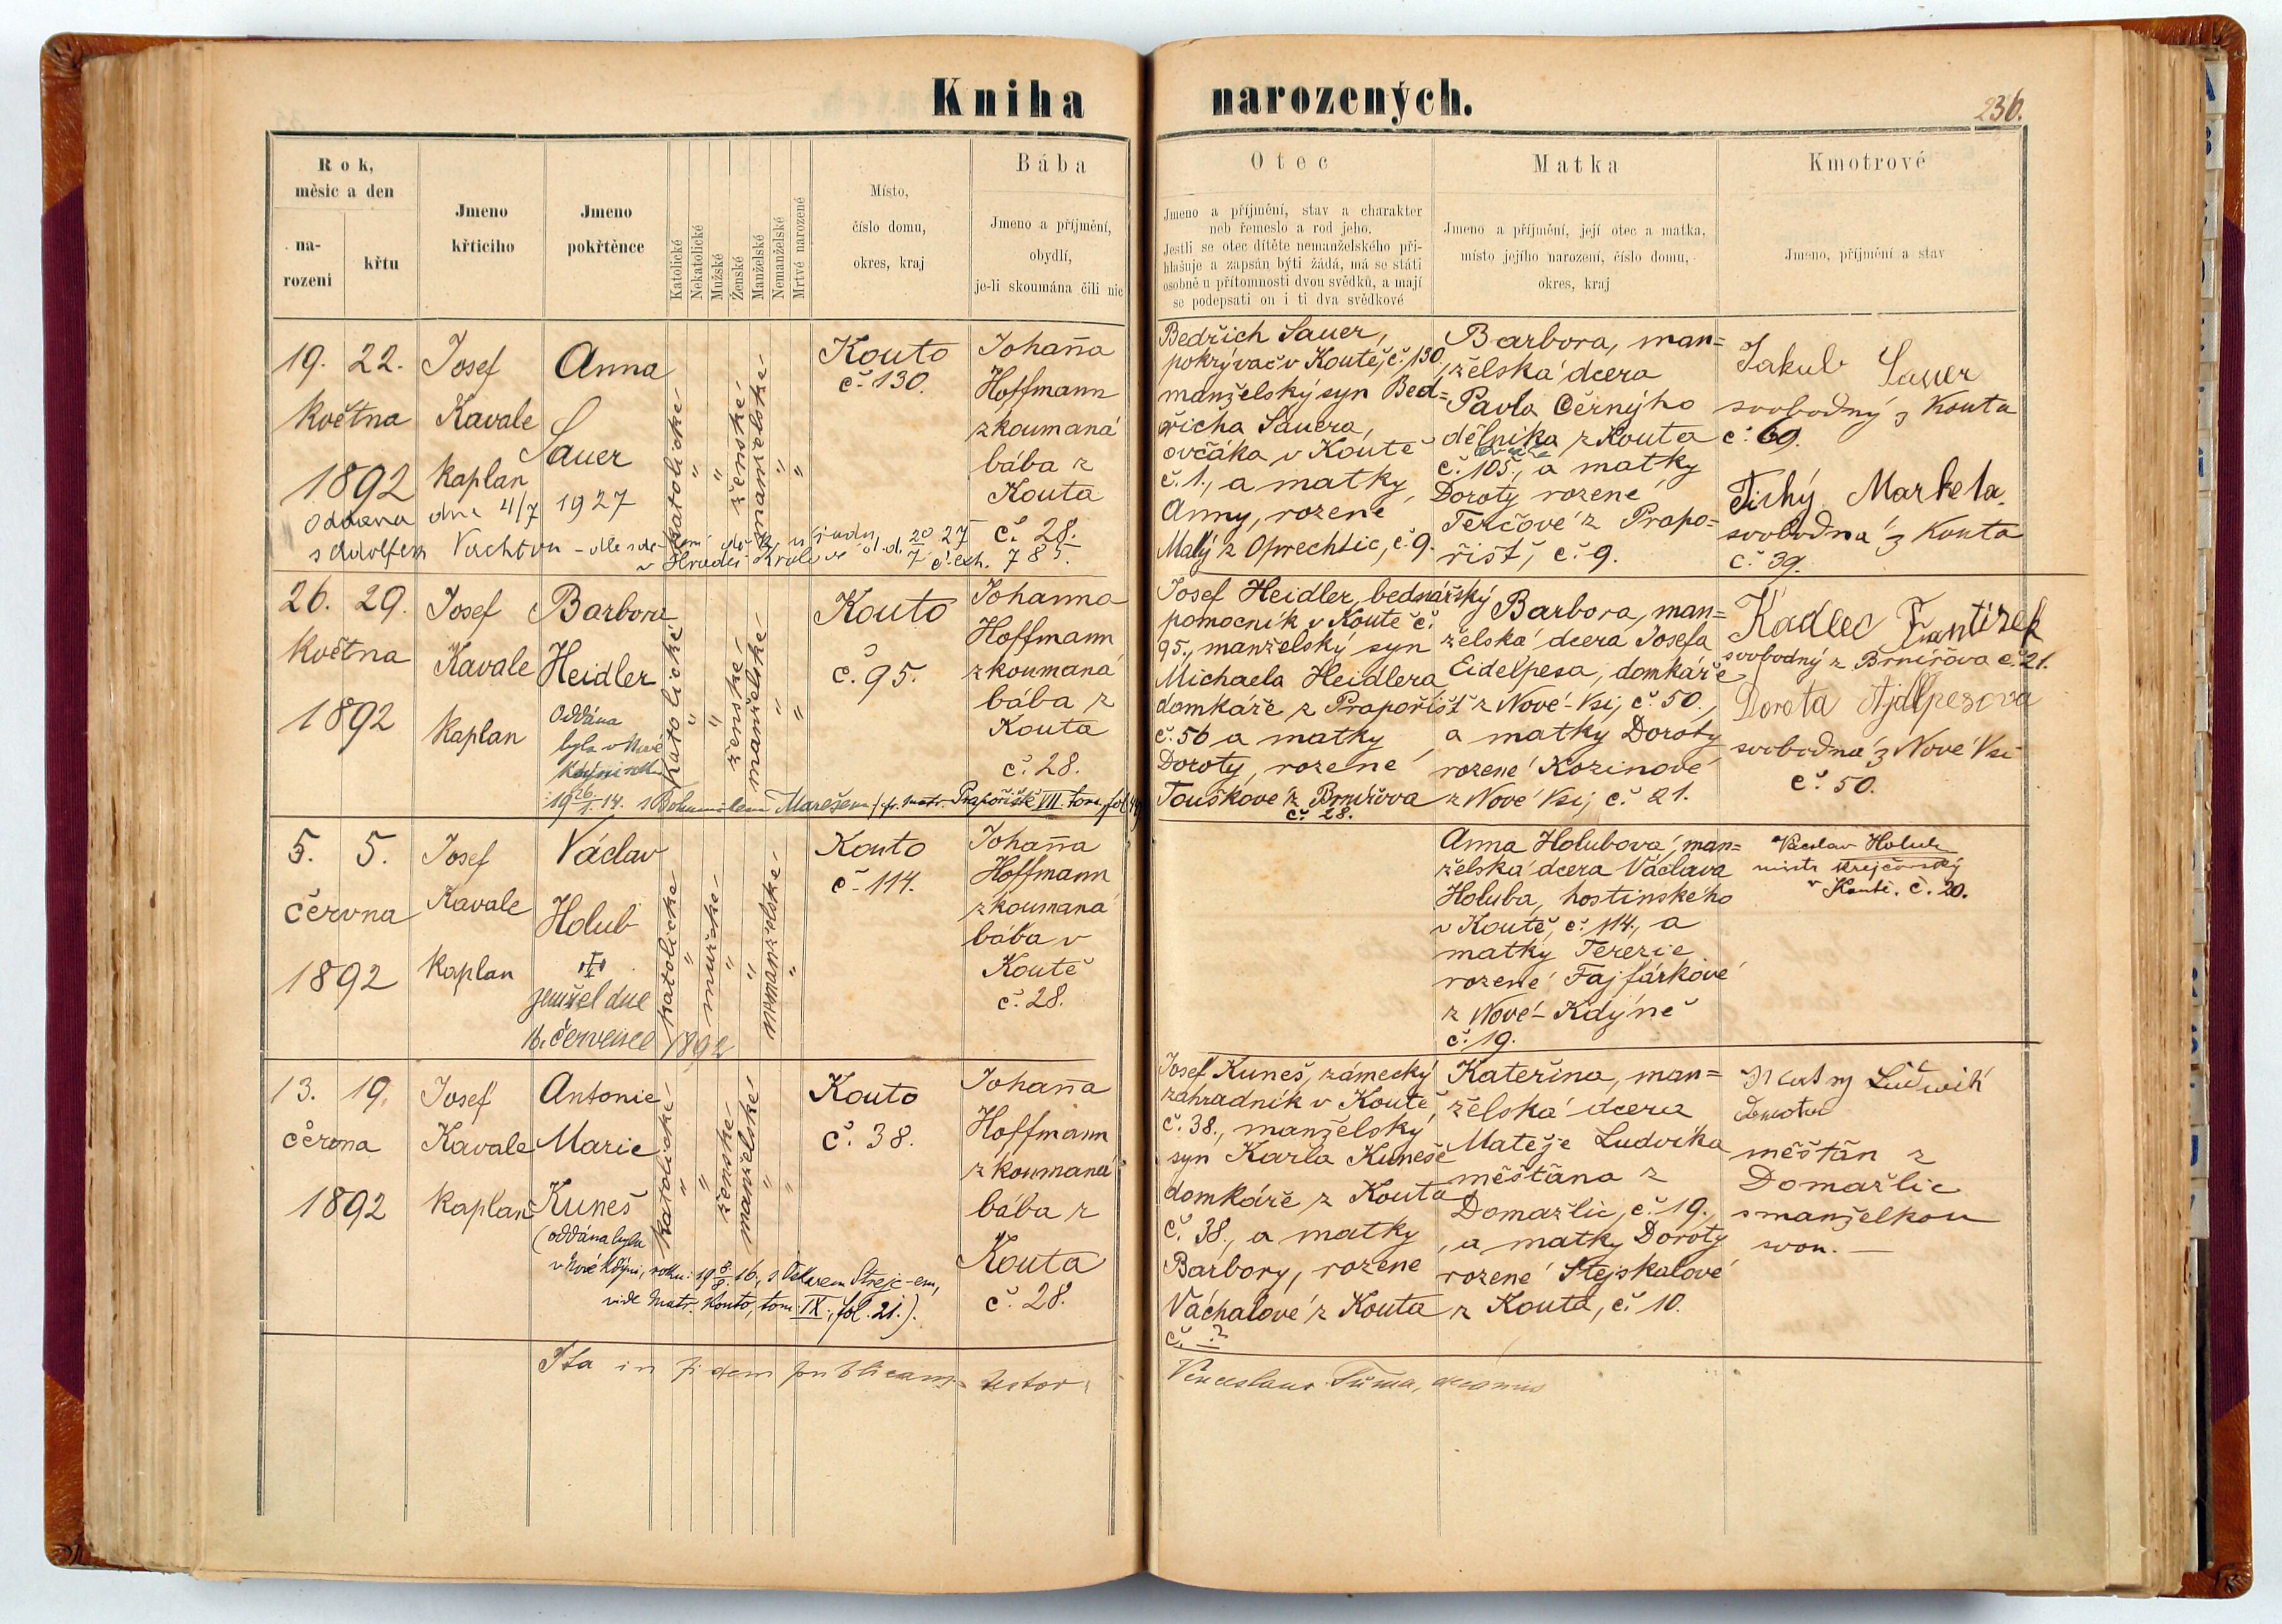 Kniha narozených.
236.
Rok,
měsíc a den
na-
rození
křtu
Jmeno
křticího
Jmeno
pokřtěnce
Katolické
Nekatolické
Mužské
Ženské
Manželské
Nemanželské
Mrtvé narozené
Místo,
číslo domu,
okres, kraj
Bába
Jmeno a příjmění,
obydlí,
je-li zkoumána čili nic
Otec
Jmeno a příjmění, stav a charakter
neb řemeslo a rod jeho.
Jestli se otec dítěte nemanželského při-
hlašuje a zapsán býti žádá, má se státi
osobně u přítomnosti dvou svědků, a mají
se podepsati on i ti dva svědkové
Matka
Jmeno a příjmění, její otec a matka,
místo jejího narození, číslo domu,
okres, kraj
Kmotrové
Jmeno, příjmění a stav
19. 22.
května
1892
Josef
Kavale
kaplan
Anna
Sauer
katolické
"
"
ženské
manželské
"
"
Kouto
č. 130.
Johaña
Hoffmann
zkoumaná
bába z
Kouta
č. 28.
Bedřich Sauer,
pokrývač v Koutě, č. 130,
manželský syn Bed=
řicha Sauera,
ovčáka v Koutě
č. 1., a matky
Anny, rozené
Malý z Oprechtic, č. 9.
Barbora, man=
želská dcera
Pavla Černýho
dělníka z Kouta
č. 105, a matky
Doroty rozené
Terčové z Prapo=
řišť, č. 9.
Jakub Sauer
svobodný z Kouta
č. 69.
Tichý Marketa
svobodná z Kouta
č. 39.
oddana dne 4/7 1927
26. 29.
května
1892
Josef
Kavale
kaplan
Barbora
Heidler
Oddána
byla v Nové
Kdyni
1914. s Bohumilem Marešem
Prapořiště VII. tom. fol.
katolické
"
"
ženské
manželské
"
"
Kouto
č. 95.
Johanna
Hoffmann
zkoumaná
bába z
Kouta
č. 28.
Josef Heidler, bednářský
pomocník v Koutě č.
95., manželský syn
Michaela Heidlera
domkáře z Prapořišť
č. 56 a matky
Doroty, rozené
Touškové z Brnířova
č. 28.
Barbora, man=
želská dcera Josefa
Eidelpesa, domkáře
z Nové-Vsi, č. 50.,
a matky Doroty
rozené Kozinové
z Nové Vsi, č. 21.
Kadlec Frantisek
svobodný z Brnířova č. 21.
Dorota Ajdlpesova
svobodná z Nové Vsi
č. 50.
5. 5.
června
1892
Josef
Kavale
kaplan
Václav
Holub
zemřel dne
16. července 1892
katolické
"
mužské
"
"
nemanželské
"
Kouto
č. 114.
Johañа
Hoffmann
zkoumaná
bába v
Koutě
č. 28.
Anna Holubova, man=
želská dcera Václava
Holuba, hostinského
v Koutě, č. 114., a
matky Terezie
rozené Fajfárkové
z Nové-Kdýně
č. 19.
Václav Holub
mistr krejčovský
v Koutě. č. 20.
13. 19.
června
1892
Josef
Kavale
kaplan
Antonie
Marie
Kuneš
(oddána byla
v Nové Kdyni, roku: 19 8/8 16., s Oskarem Strejc-em,
vide Matr. Kouto, tom. IX., fol. 21.).
katolické
"
"
ženské
manželské
"
"
Kouto
č. 38.
Johañа
Hoffmann
zkoumaná
bába z
Kouta
č. 28.
Josef Kuneš, zámecký
zahradník v Koutě,
č. 38., manželský
syn Karla Kuneše
domkáře z Kouta
č. 38., a matky
Barbory, rozené
Váchalové z Kouta
č. ?
Kateřina, man=
želská dcera
Matěje Ludvíka
měšťana z
Domažlic, č. 19.,
a matky Doroty
rozené Stejskalové
z Kouta, č. 10.
Ludwik
měšťan z
Domažlic
s manželkou
svou.
Ita in fidem publicam testor.
Venceslaus Tůma,